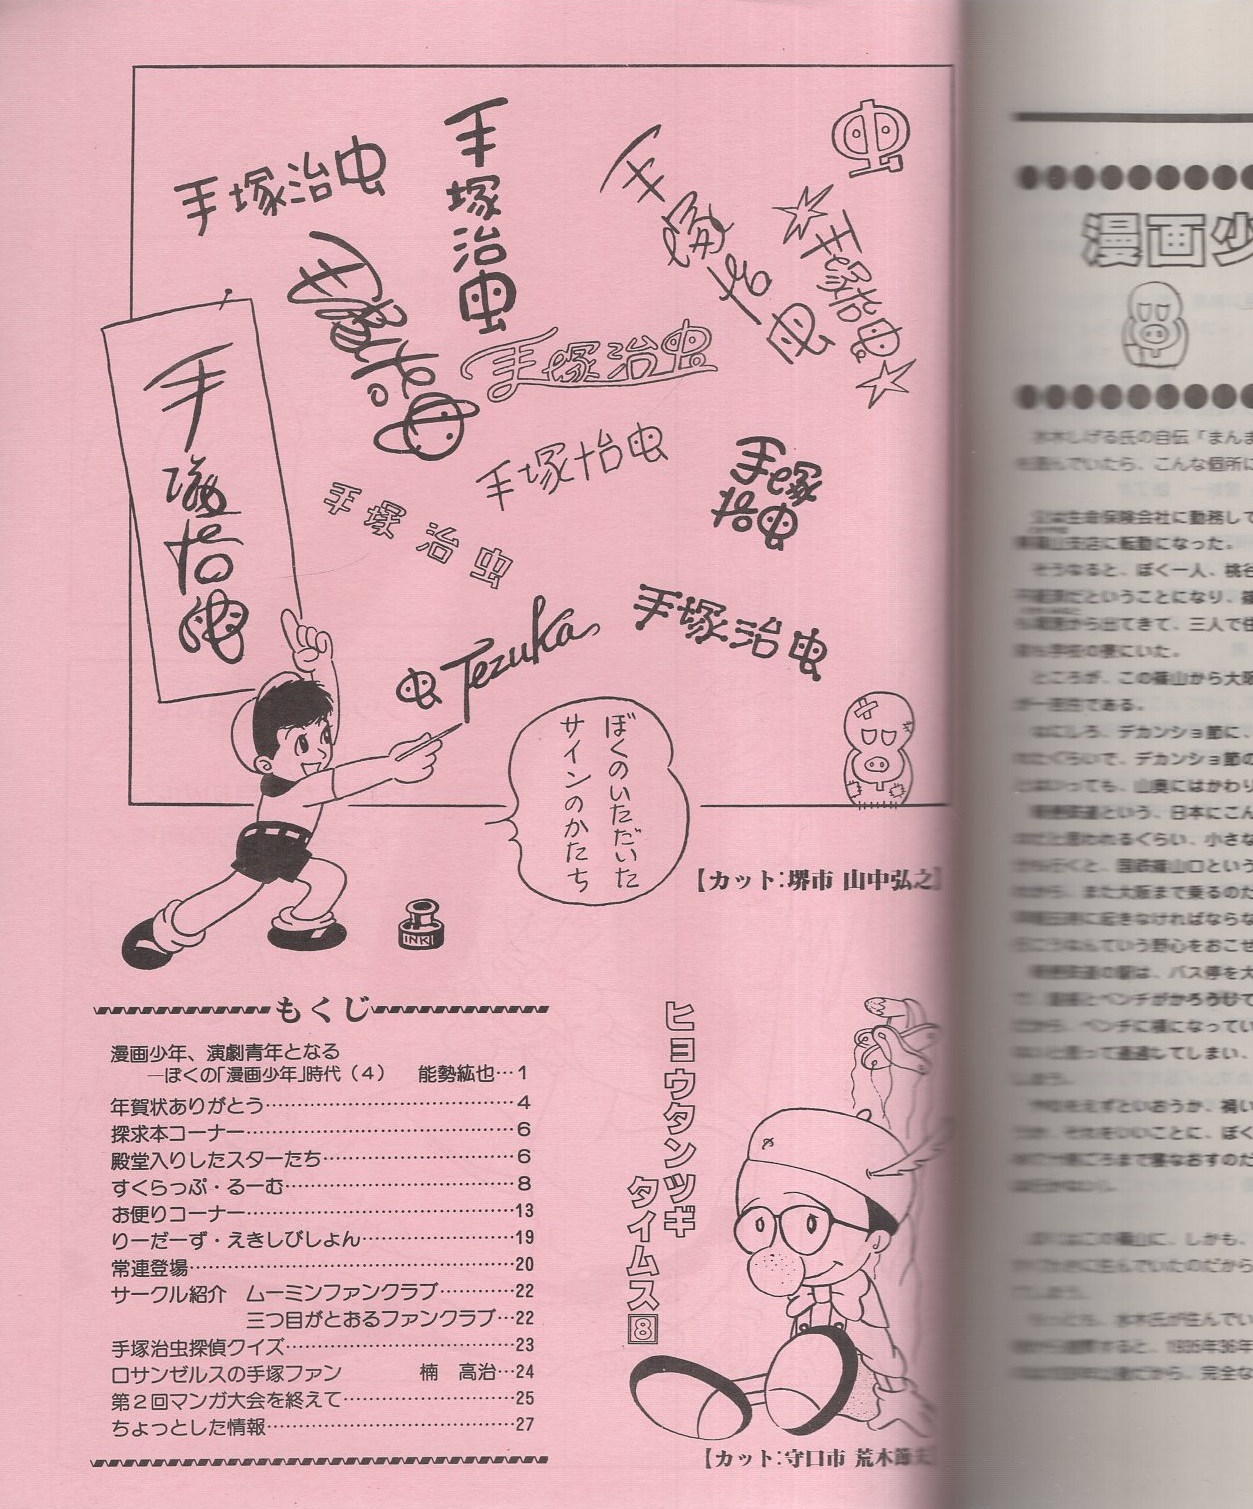 虫
手塚治虫
手塚治虫
手塚治虫
手塚治虫
手塚治虫
手塚治虫
手塚治虫
手塚治虫
手塚治虫
手塚治虫
手塚治虫
手塚治虫
虫 Tezuka
ぼくのいただいた
サインのかたち
【カット:堺市 山中弘之】
INK
もくじ
漫画少年、演劇青年となる
―ぼくの「漫画少年」時代(4) 能勢紘也…1
年賀状ありがとう…4
探求本コーナー…6
殿堂入りしたスターたち…6
すくらっぷ・るーむ…8
お便りコーナー…13
りーだーず・えきしびしょん…19
常連登場…20
サークル紹介 ムーミンファンクラブ…22
三つ目がとおるファンクラブ…22
手塚治虫探偵クイズ…23
ロサンゼルスの手塚ファン 楠 高治…24
第2回マンガ大会を終えて…25
ちょっとした情報…27
ヒョウタンツギ
タイムス8
【カット:守口市 荒木節
漫画少
水木しげる氏の自伝「まんま
んでいたら、こんな個所に
生命保険会社に勤務して
篠山支店に転勤になった。
そうなると、ぼく一人、桃谷
だということになり、篠
から出てきて、三人で住
学校の寮にいた。
ところが、この篠山から大阪
が一苦労である。
なにしろ、デカンショ節に、
れたぐらいで、デカンショ節の
とはいっても、山奥にはかわり
鉄道という、日本にこん
だと思われるぐらい、小さな
行くと、国鉄篠山口という
から、また大阪まで乗るのだ
に起きなければならな
なんていう野心をおこせ
の駅は、バス停を大
とベンチがかろうじて
から、ベンチに横になってい
って通過してしまい、
ずといおうか、
それをいいことに、ぼく
ごろまで寝なおすのだ
はこの篠山に、しかも、
んでいたのだから
水木氏が住んでい
すると、1935年36年
から、完全な